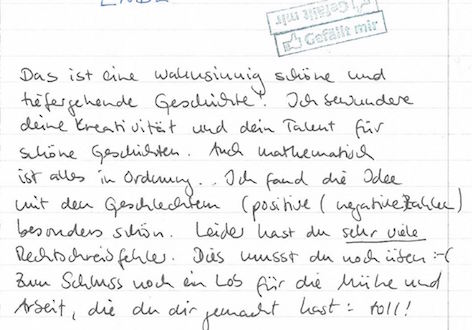 ENDE
Gefällt mir
Gefällt mir
Das ist eine wahnsinnig schöne und
tiefergehende Geschichte! Ich bewundere
deine Kreativität und dein Talent für
schöne Geschichten. Auch mathematisch
ist alles in Ordnung.. Ich fand die Idee
mit den Geschlechtern (positive / negative Zahlen)
besonders schön. Leider hast du sehr viele
Rechtschreibfehler. Dies musst du noch üben :-(
Zum Schluss noch ein Lob für die Mühe und
Arbeit, die du dir gemacht hast : toll!